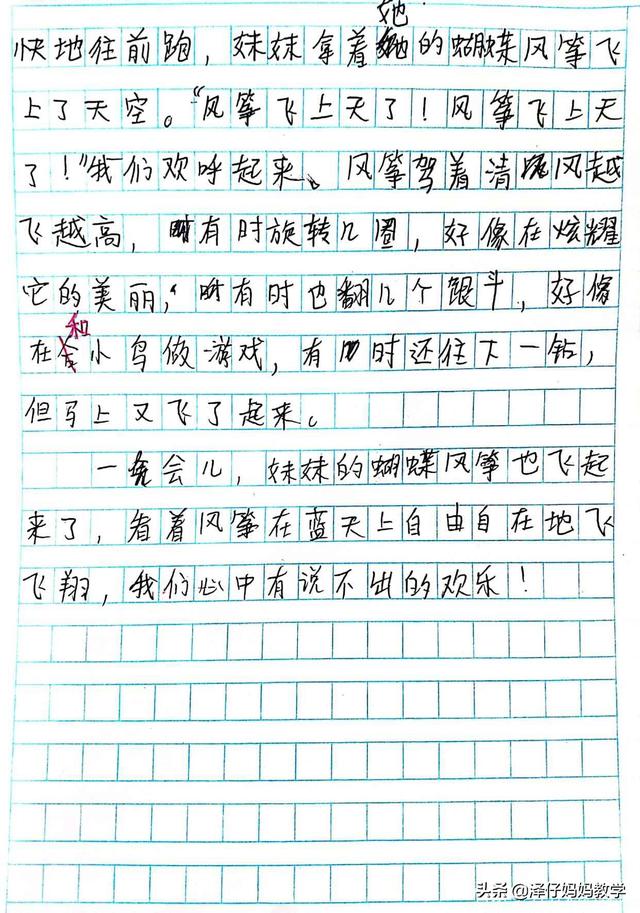 她
快地往前跑，妹妹拿着的蝴蝶风筝飞
上了天空。“风筝飞上天了！风筝飞上天
了！”我们欢呼起来、风筝驾着清风越
飞越高，有时旋转几圈，好像在炫耀
它的美丽，有时也翻几个跟斗，好像
和
在小鸟做游戏，有时还往下一钻，
但马上又飞了起来。
一会儿，妹妹的蝴蝶风筝也飞起
来了，看着风筝在蓝天上自由自在地飞
飞翔，我们心中有说不出的欢乐！
头条@泽仔妈妈教学